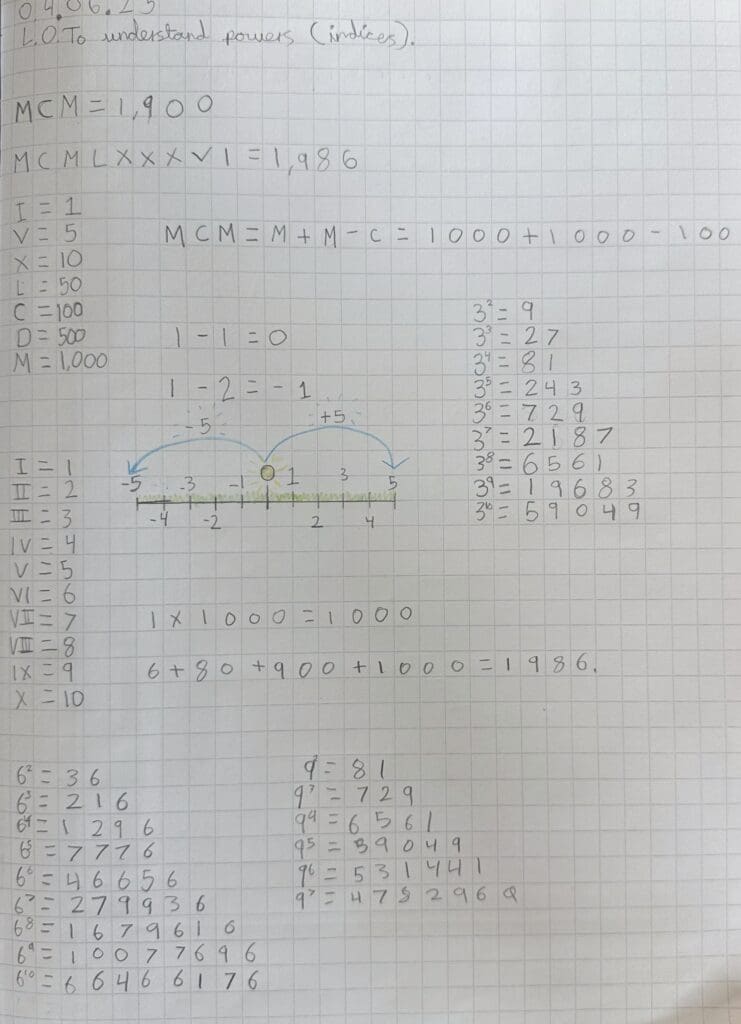 04.06.25
L.O. To understand powers (indices).
MCM = 1,900
MCMLXXXVI = 1,986
I = 1
V = 5
X = 10
L = 50
C = 100
D = 500
M = 1,000
MCM = M + M - C = 1000 + 1000 - 100
1 - 1 = 0
1 - 2 = - 1
3² = 9
3³ = 27
3⁴ = 81
3⁵ = 243
3⁶ = 729
3⁷ = 2187
3⁸ = 6561
3⁹ = 19683
3¹⁰ = 59049
-5 +5
-5 -3 -1 0 1 3 5
-4 -2 2 4
I = 1
II = 2
III = 3
IV = 4
V = 5
VI = 6
VII = 7
VIII = 8
IX = 9
X = 10
1 x 1000 = 1000
6 + 80 + 900 + 1000 = 1986.
6² = 36
6³ = 216
6⁴ = 1296
6⁵ = 7776
6⁶ = 46656
6⁷ = 279936
6⁸ = 1679616
6⁹ = 10077696
6¹⁰ = 60466176
9² = 81
9³ = 729
9⁴ = 6561
9⁵ = 59049
9⁶ = 531441